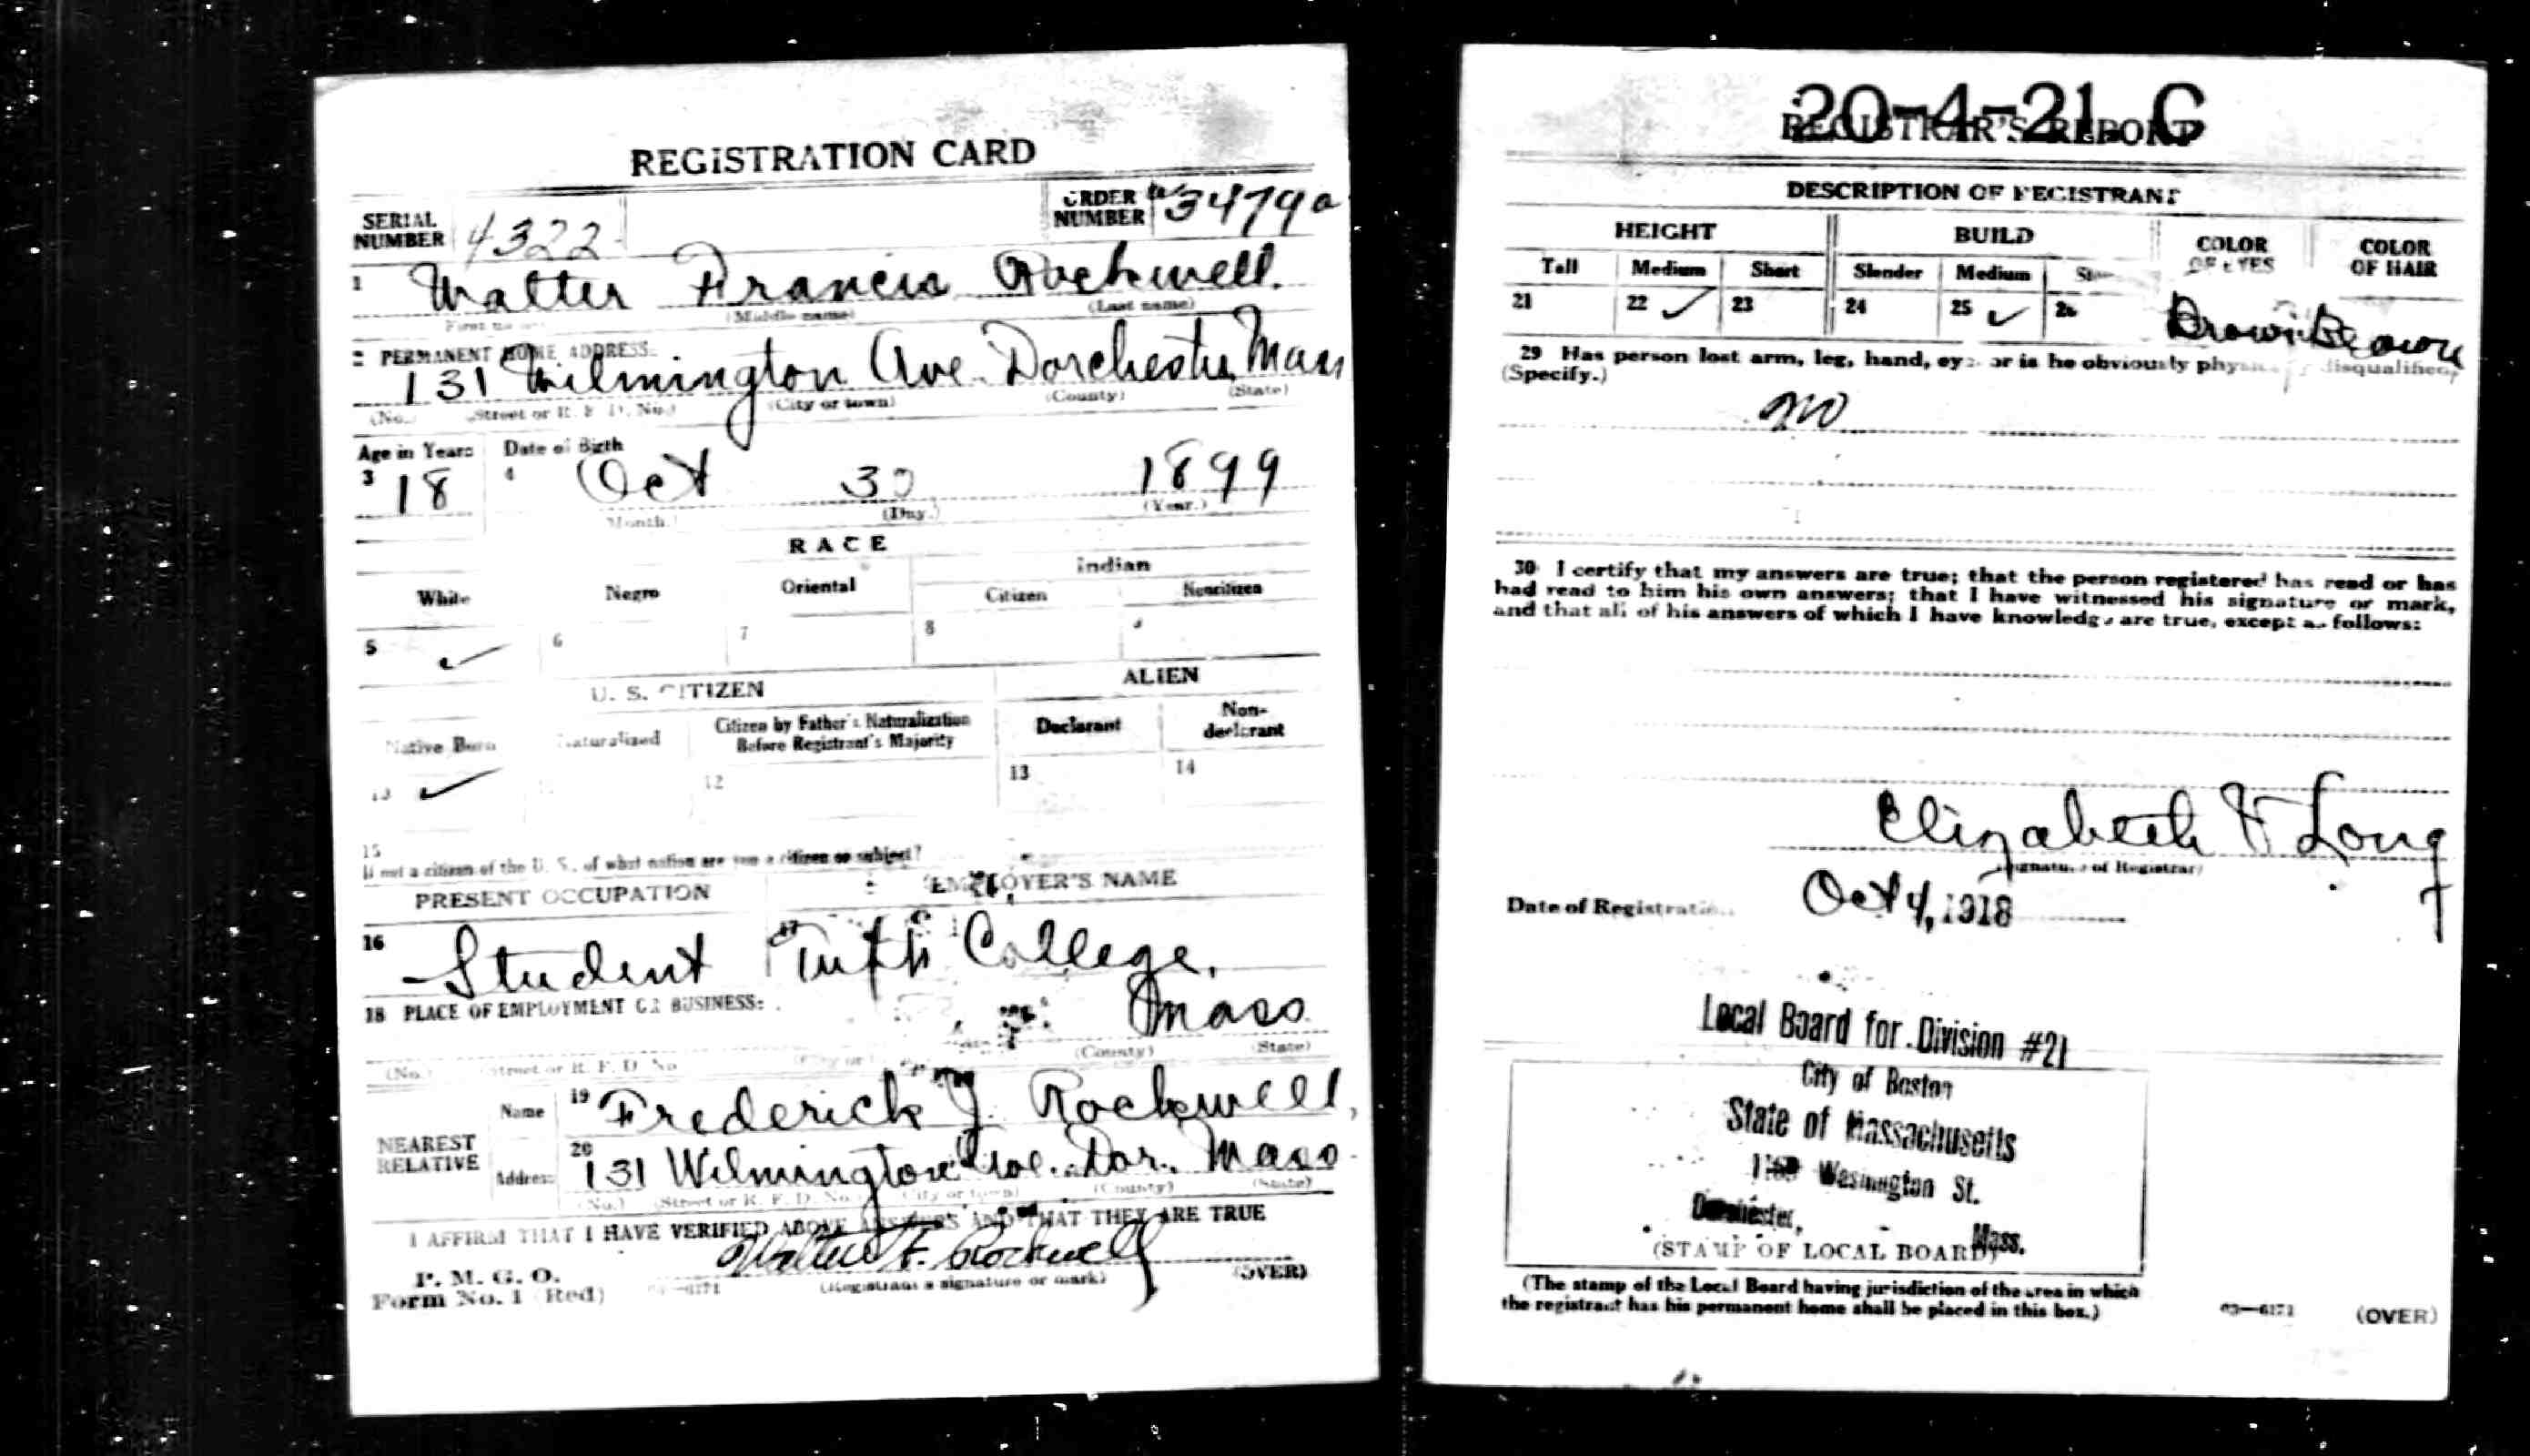 REGISTRATION CARD
SERIAL NUMBER 4322
ORDER NUMBER 3479a
1 Walter Francis Rockwell.
(Middle name) (Last name)
2 PERMANENT HOME ADDRESS:
131 Wilmington Ave. Dorchester, Mass
(No.) (Street or R. F. D. No.) (City or town) (County) (State)
Age in Years Date of Birth
3 18 4 Oct 30 1899
(Month.) (Day.) (Year.)
RACE
White Negro Oriental Indian
Citizen Noncitizen
5 ✓ 6 7 8
U. S. CITIZEN ALIEN
Native Born Naturalized Citizen by Father's Naturalization Before Registrant's Majority Declarant Non-declarant
10 ✓ 12 13 14
15
If not a citizen of the U. S., of what nation are you a citizen or subject?
PRESENT OCCUPATION EMPLOYER'S NAME
16 Student 17 Tufts College,
18 PLACE OF EMPLOYMENT OR BUSINESS:
Mass
(No.) (Street or R. F. D. No (County) (State)
NEAREST RELATIVE
Name 19 Frederick J. Rockwell,
Address 20 131 Wilmington Ave. Dor. Mass
(No.) (Street or R. F. D. No.) (City or town) (County) (State)
I AFFIRM THAT I HAVE VERIFIED ABOVE ANSWERS AND THAT THEY ARE TRUE
Walter F. Rockwell
P. M. G. O.
Form No. 1 (Red) (Registrant's signature or mark) (OVER)
20-4-21. C
REGISTRAR'S REPORT
DESCRIPTION OF REGISTRANT
HEIGHT BUILD COLOR OF EYES COLOR OF HAIR
Tall Medium Short Slender Medium
21 22 ✓ 23 24 25 ✓ 26 Brown Brown
29 Has person lost arm, leg, hand, eye, or is he obviously physically disqualified?
(Specify.)
no
30 I certify that my answers are true; that the person registered has read or has
had read to him his own answers; that I have witnessed his signature or mark,
and that all of his answers of which I have knowledge are true, except as follows:
Elizabeth F Long
(Signature of Registrar)
Date of Registration Oct 4, 1918
Local Board for Division #21
City of Boston
State of Massachusetts
Washington St.
Dorchester, Mass.
(STAMP OF LOCAL BOARD)
(The stamp of the Local Board having jurisdiction of the area in which
the registrant has his permanent home shall be placed in this box.)
03—6171 (OVER)